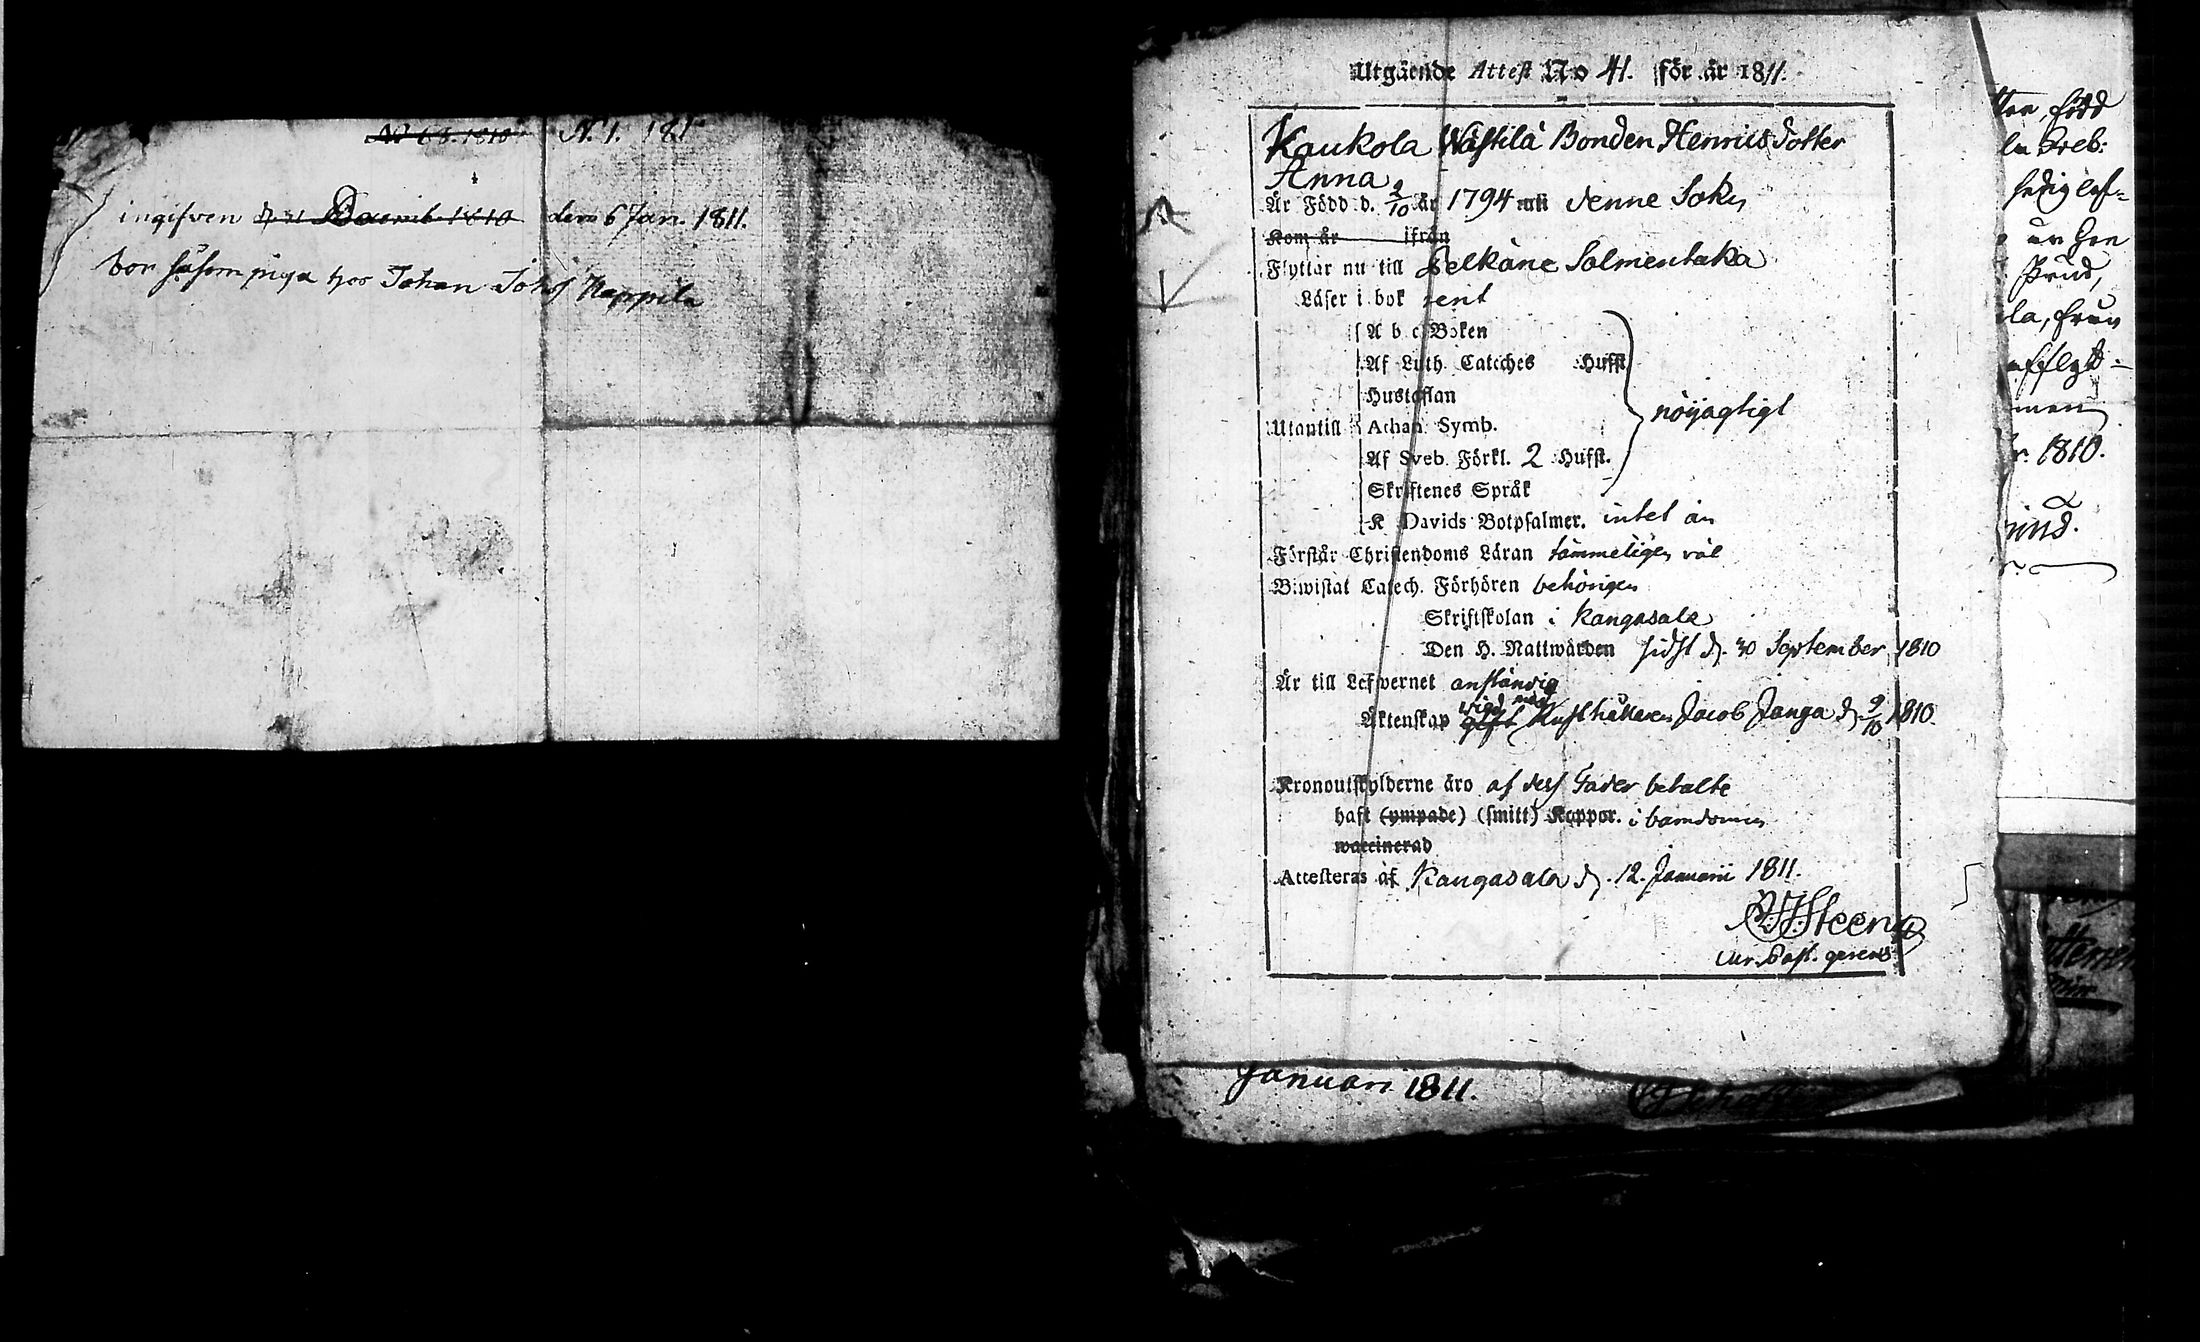 No 68. 1810 N. 1. 181
ingifven d. 21 Decemb. 1810 den 6 Jan. 1811.
bor såsom piga hos Johan Johs Kappila
Utgående Attest No 41. för år 1811.
Kaukola Wästilä Bonden Henrics dotter
Anna
Är Född d. 2/10 år 1794 uti denne Sokn
Kom år ifrån
Flyttar nu till Pelkäne Salmentaka
Läser i bok rent
A b c Boken
Af Luth. Cateches Hufst
Hustaflan
Utantill Athan. Symb.
Af Sveb. Förkl. 2 Hufst.
nöijagtigt
Skriftenes Språk
K Davids Botpsalmer. intet än
Förstår Christendoms Läran tämmeligen väl
Biwistat Catech. Förhören behörigen
Skriftskolan i Kangasala
Den H. Nattwarden sidst d. 30 September 1810
Är till Lefwernet anständig
wigd med
Äktenskap gift Rusthållaren Jacob Janga d. 9/10 1810.
Kronoutskylderne äro af dess Fader betalte
haft (ympade) (smitt) Koppor. i barndomen
waccinerad
Attesteras af Kangasala d. 12. Januarii 1811.
Steen
Cur. Past. gerens
Januari 1811.
född
Sveb:
la, från
afflytt-
1810.